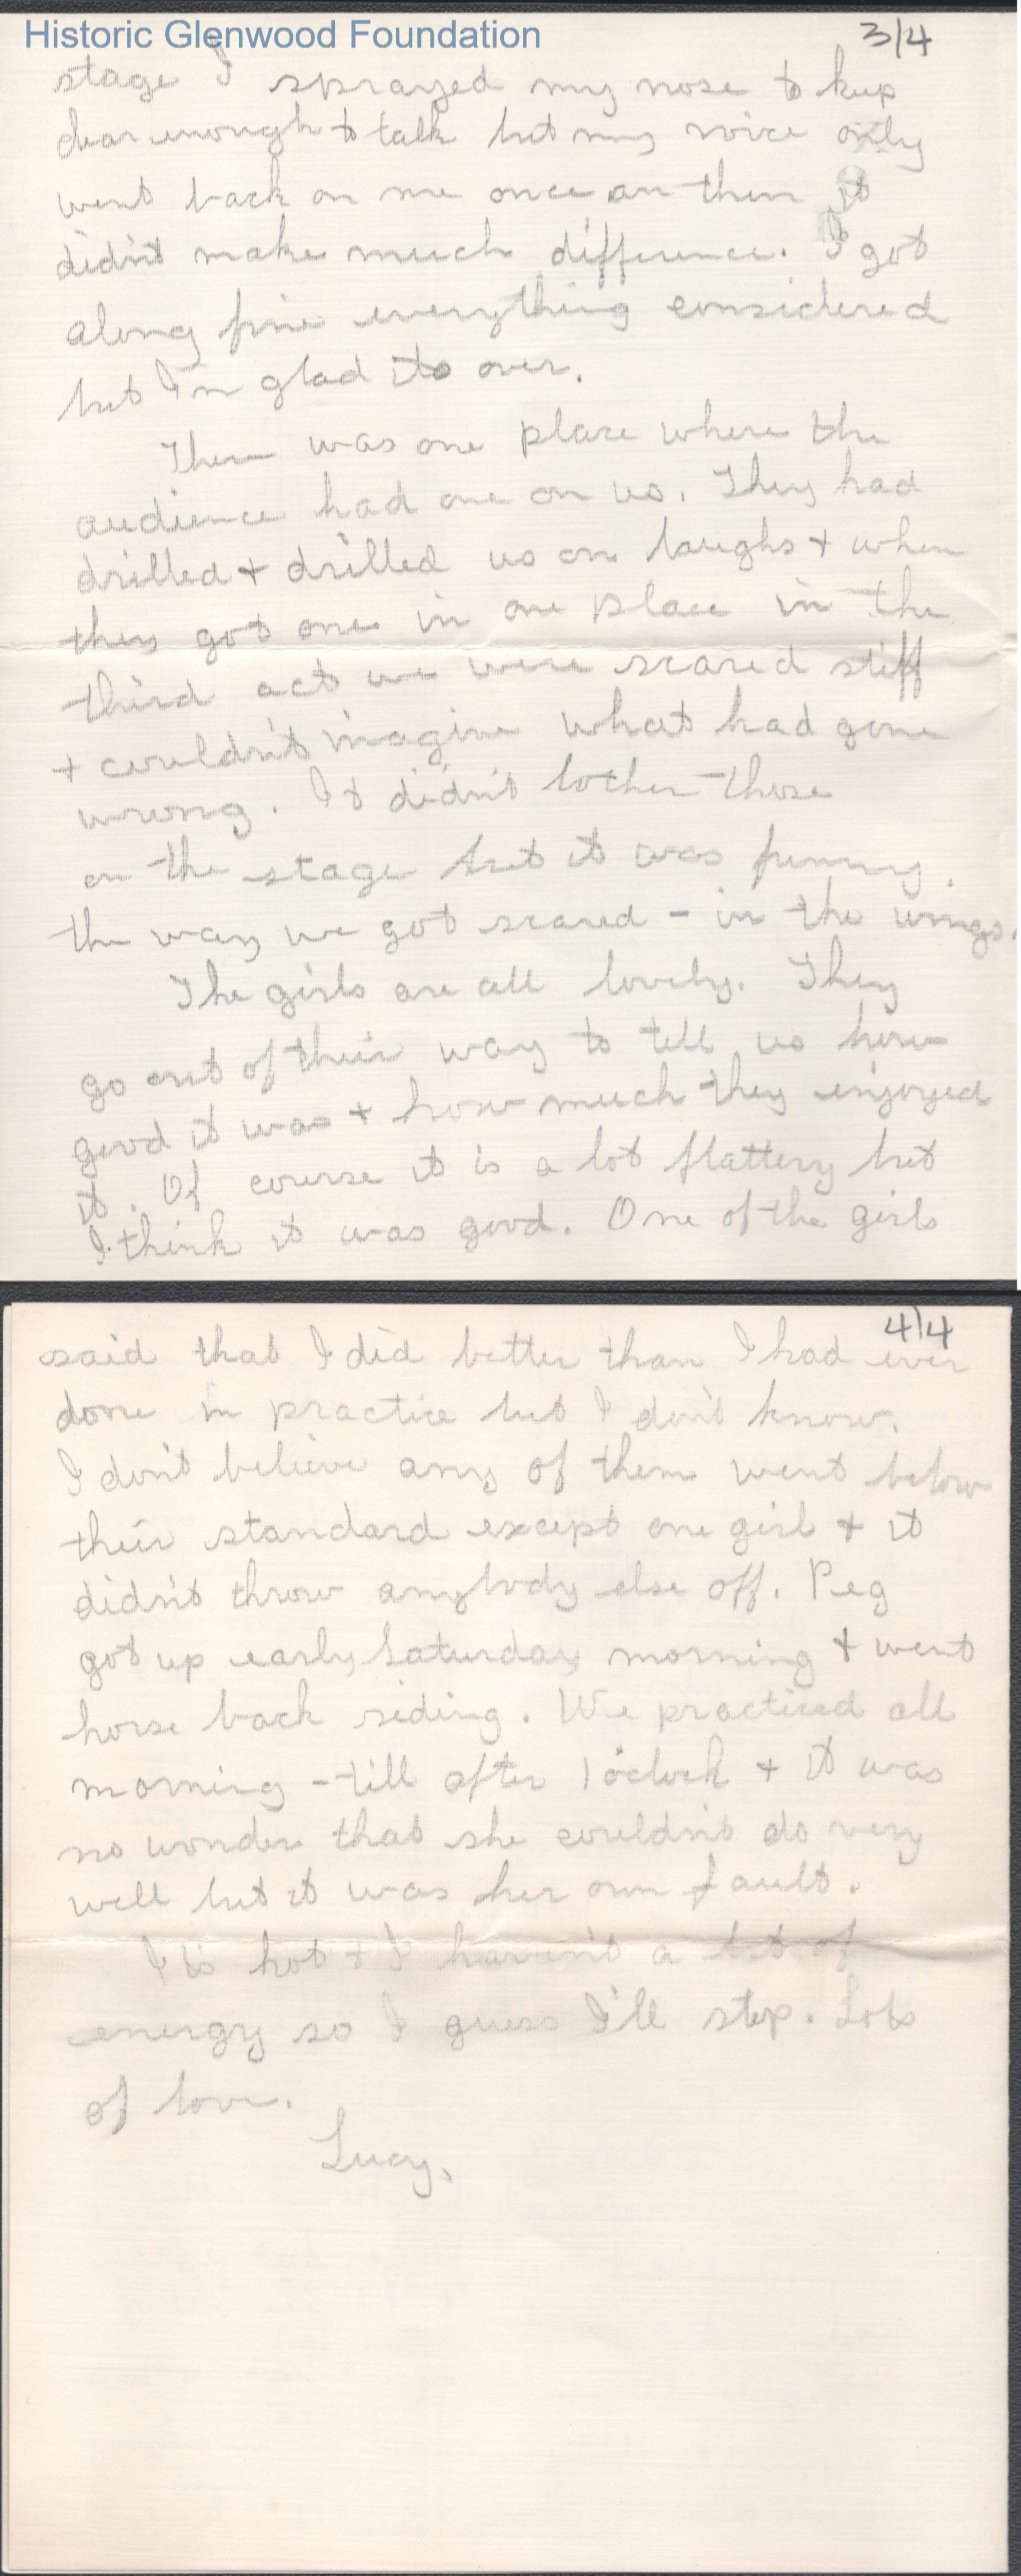 Historic Glenwood Foundation
3/4
stage I sprayed my nose to keep
clear enough to talk but my voice only
went back on me once an then it
didn't make much difference. I got
along fine everything considered
but I'm glad its over.
There was one place where the
audience had one on us. They had
drilled + drilled us on laughs + when
they got one in one place in the
third act we were scared stiff
+ couldn't imagine what had gone
wrong. It didn't bother those
on the stage but it was funny
the way we got scared - in the wings.
The girls are all lovely. They
go out of their way to tell us how
good it was + how much they enjoyed
it. Of course it is a lot flattery but
I think it was good. One of the girls
4/4
said that I did better than I had ever
done in practice but I don't know.
I don't believe any of them went below
their standard except one girl + it
didn't throw anybody else off. Peg
got up early Saturday morning + went
horse back riding. We practiced all
morning - till after 1 o'clock + it was
no wonder that she couldn't do very
well but it was her own fault.
It's hot + I haven't a bit of
energy so I guess I'll stop. Lots
of love.
Lucy.